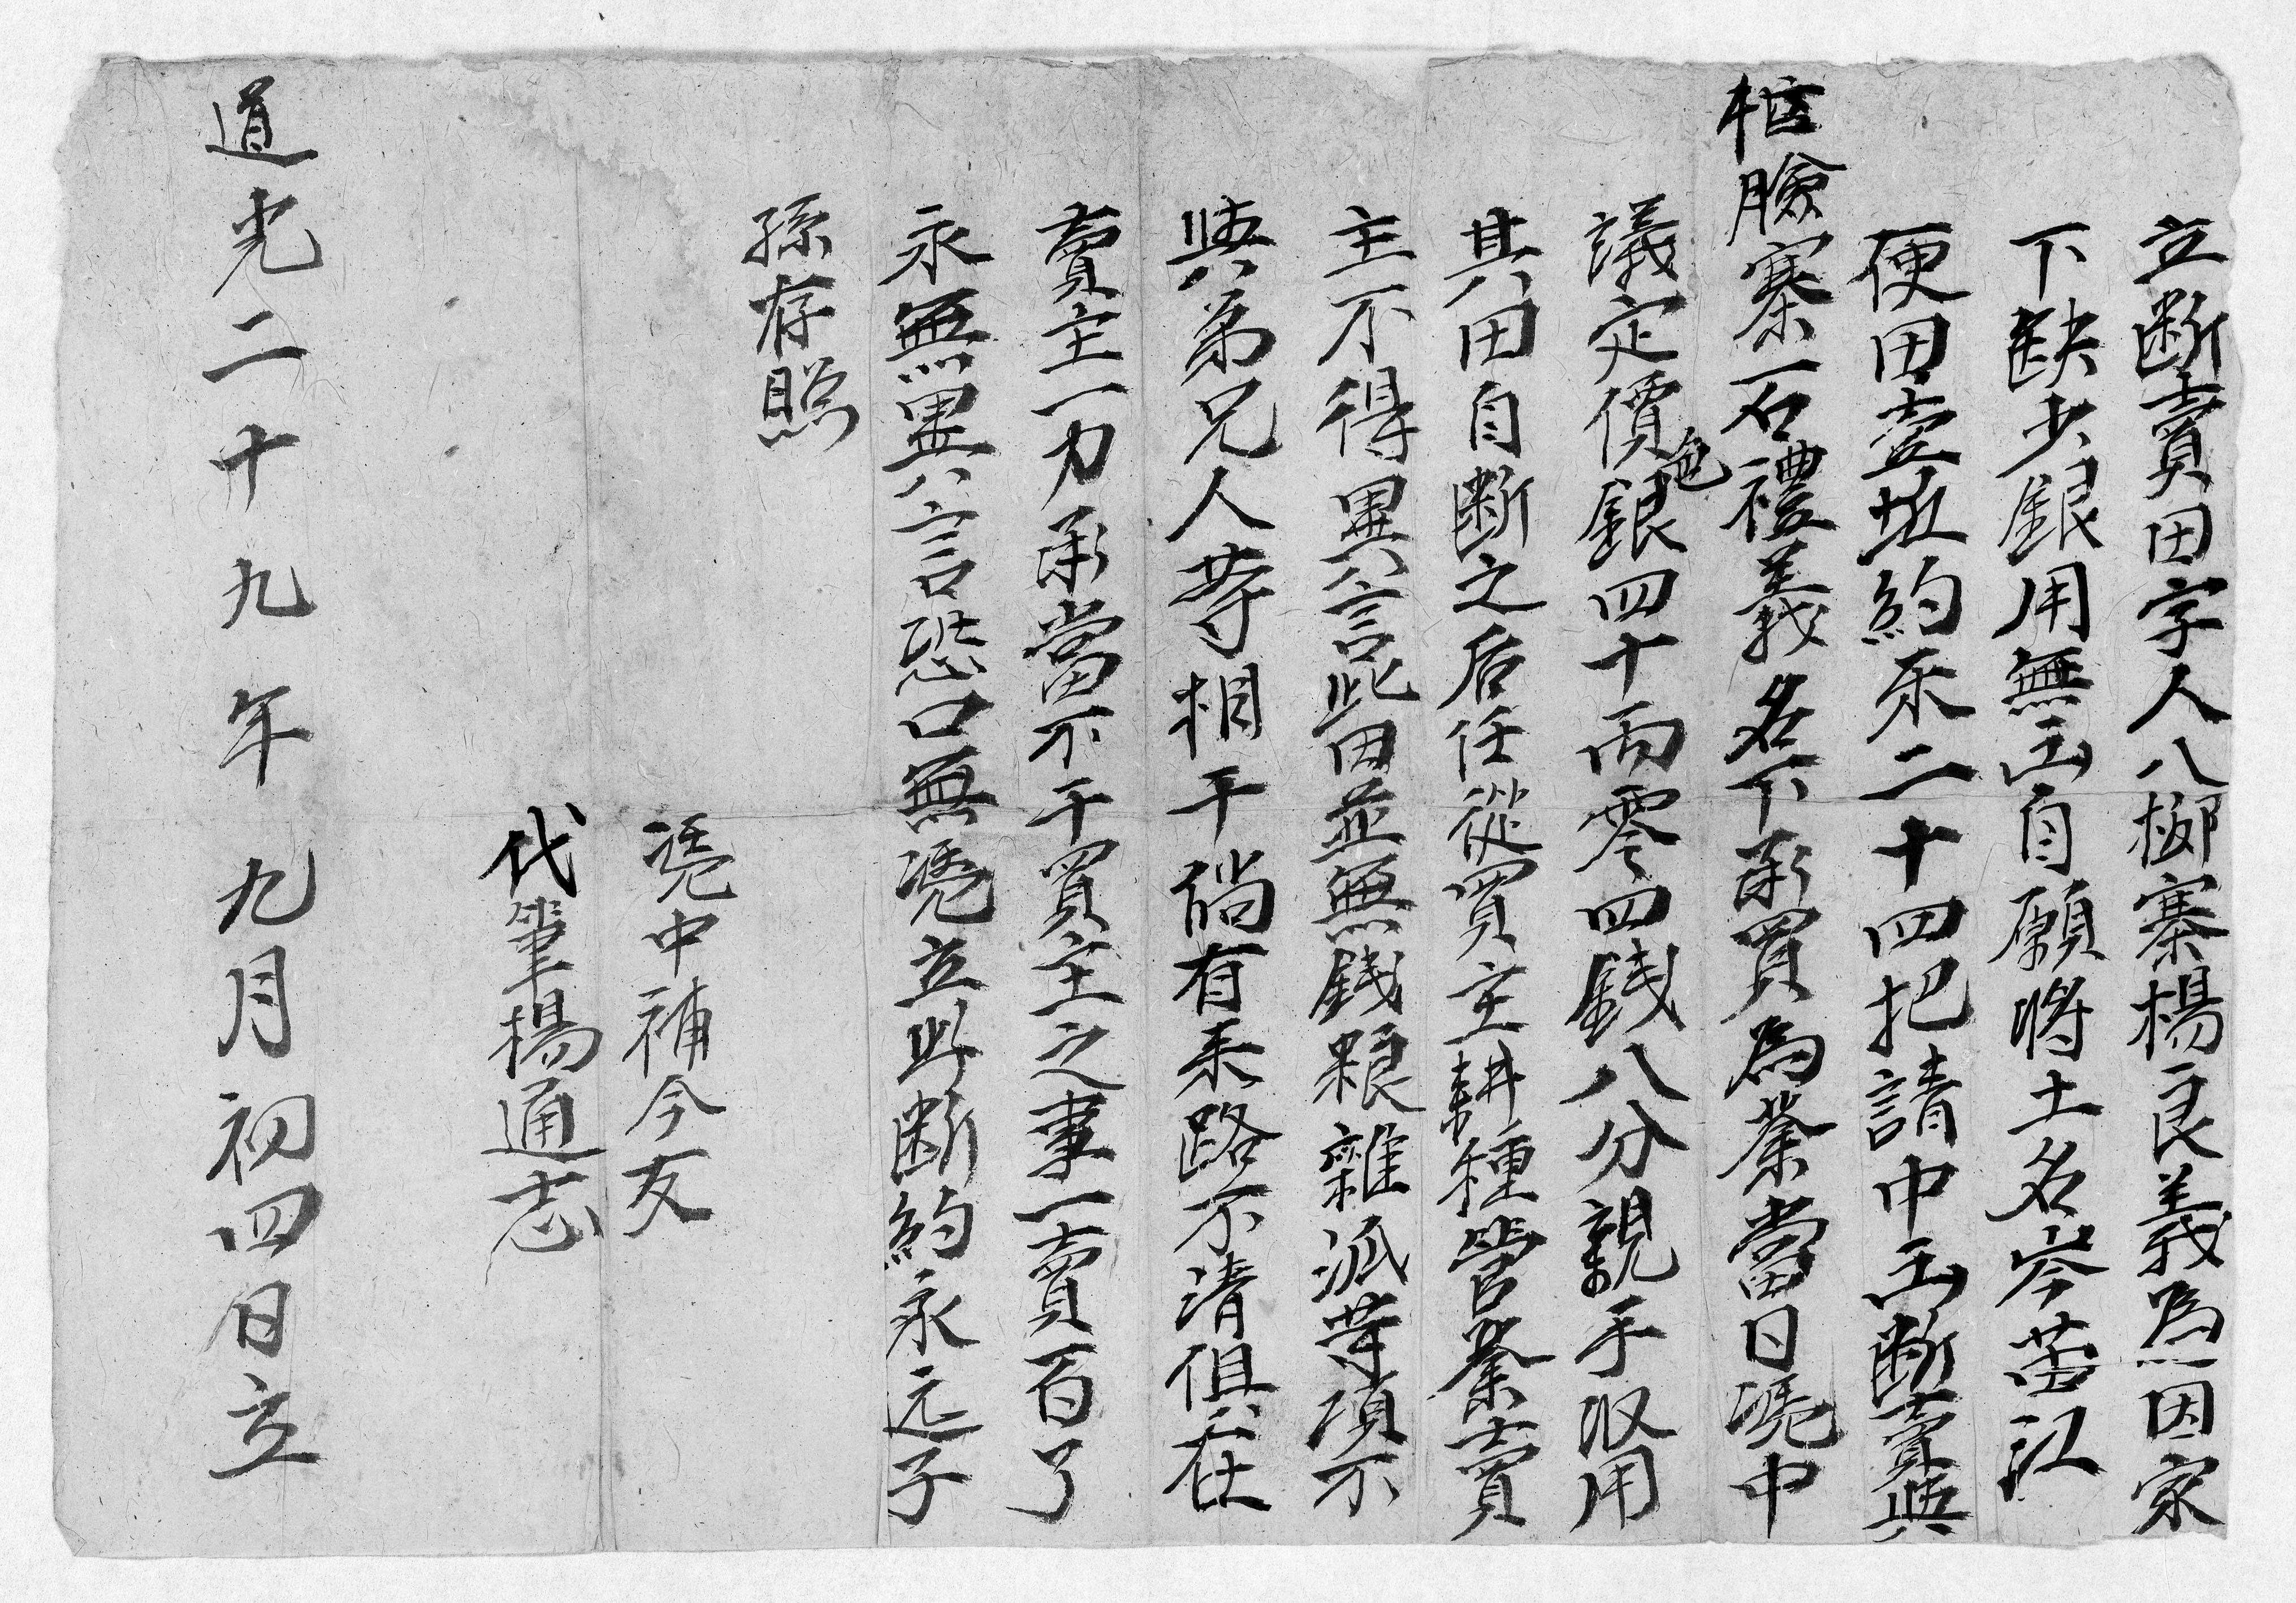 立斷賣田字人八梛寨楊良義爲因家
下缺少銀用無出自願將土名岑苗江
便田壹坵約禾二十四把請中出斷賣與
臉寨石禮義名下承買爲業當日憑中
議定價色銀四十両零四錢八分親手収用
其田自斷之后任從買主耕種管業賣
主不得異言此田並無錢粮雜派等項不
與弟兄人等相干倘有来路不清俱在
賣主一力承當不干買主之事一賣百了
永無異言恐口無憑立此斷約永远子
孫存照
憑中補今友
代筆楊通志
道光二十九年九月初四日立